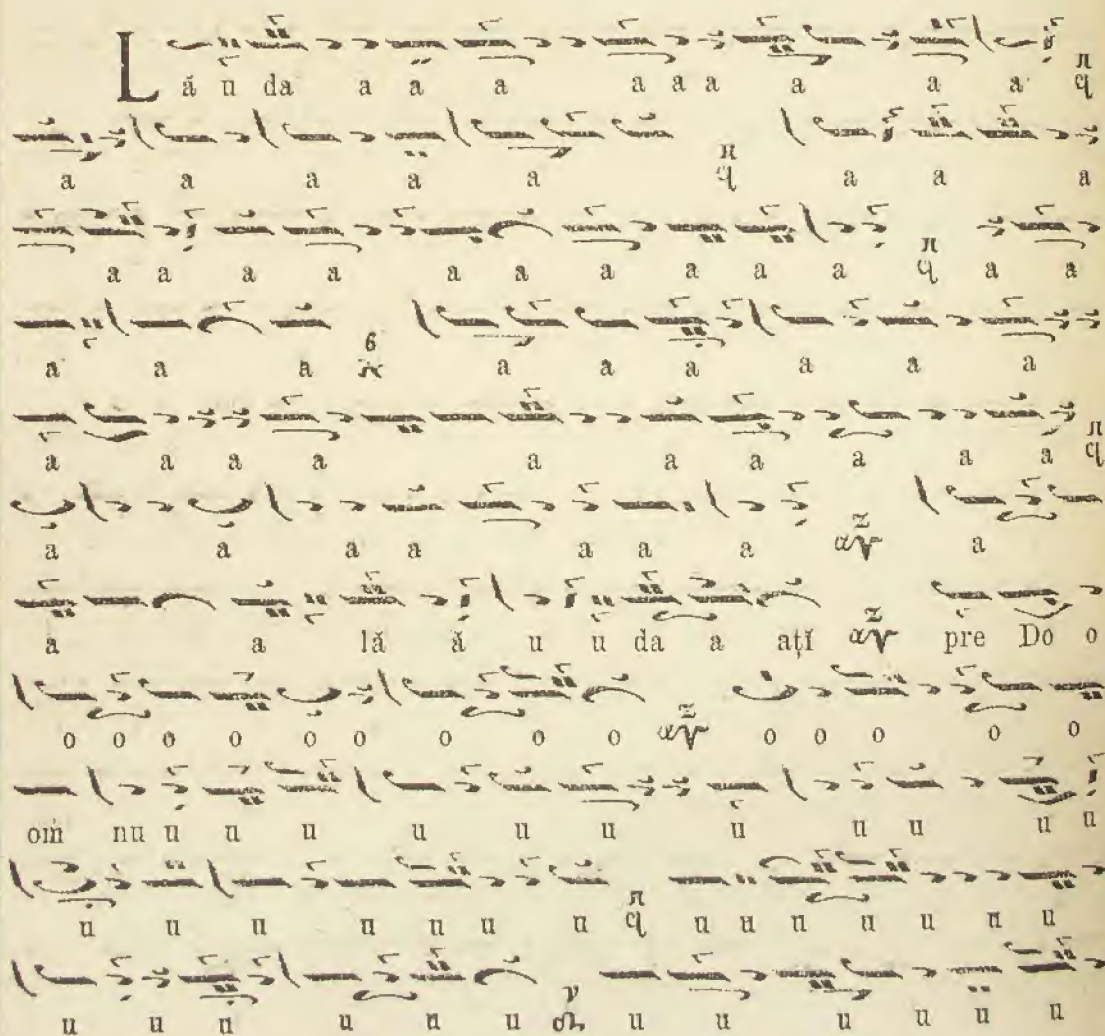 Lă ŭ da a a a a a a a a a
a a a a a a a a
a a a a a a a a a a a a
a a a a a a a a a
a a a a a a a a a a
a a a a a a a a
a a lă ă u ŭ da a ațĭ pre Do o
o o o o o o o o o o o o o o
om nu u u u u u u u u u u u
u u u u u u u u u u u u u u
u u u u u u u u u u u u